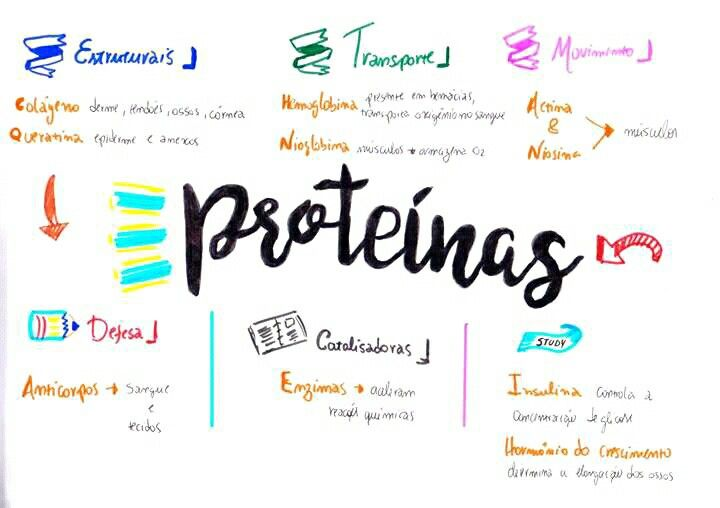 Estruturais
Colágeno derme, tendões, ossos, córnea
Queratina epiderme e anexos
Transporte
Hemoglobina presente em hemácias,
transporta oxigênio no sangue
Nioglobina músculos → armazena O2
Movimento
Actina
&
Niosina
músculos
proteínas
Defesa
Anticorpos → sangue
e
tecidos
Catalisadoras
Enzimas → aceleram
reação químicas
STUDY
Insulina controla a
concentração de glicose
Hhormônio do crescimento
determina a elongação dos ossos